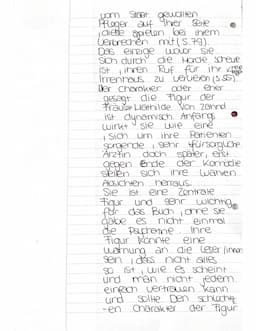 vom Staat gewollten
Pfleger auf ihrer Seite
, diese spielen bei ihrem
Verbrechen mit (S.79).
Das einzige wovor sie
sich durch die Morde scheute
ist, ihren Ruf für ihr
Irrenhaus zu verlieren (s.55).
Der charakter oder eher
gesagt die Figur der
Fräulein Mathilde von Zahnd
ist dynamisch. Anfangs
wirkt sie wie eine
, sich um ihre Patienten
sorgende, sehr fürsorgliche
Ärztin doch später, erst
gegen Ende der Komödie
stellen sich ihre wahren
Absichten herraus.
Sie ist eine zentrale
Figur und sehr wichtig
für das Buch, ohne sie
gäbe es nicht einmal
die Psychatrie. Ihre
Figur könnte eine
warnung an die Leser/innen
sein, dass nicht alles
so ist, wie es scheint
und man nicht jedem
einfach vertrauen kann
und sollte. Den schlecht
-en Charakter der Figur